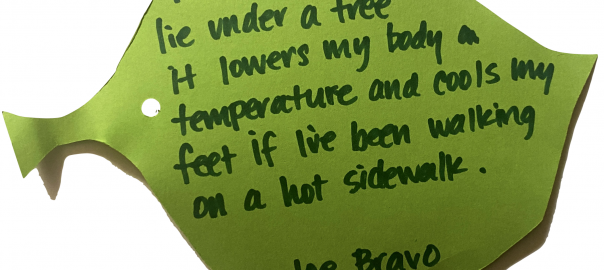 lie under a tree
it lowers my body
temperature and cools my
feet if I've been walking
on a hot sidewalk.
Bravo